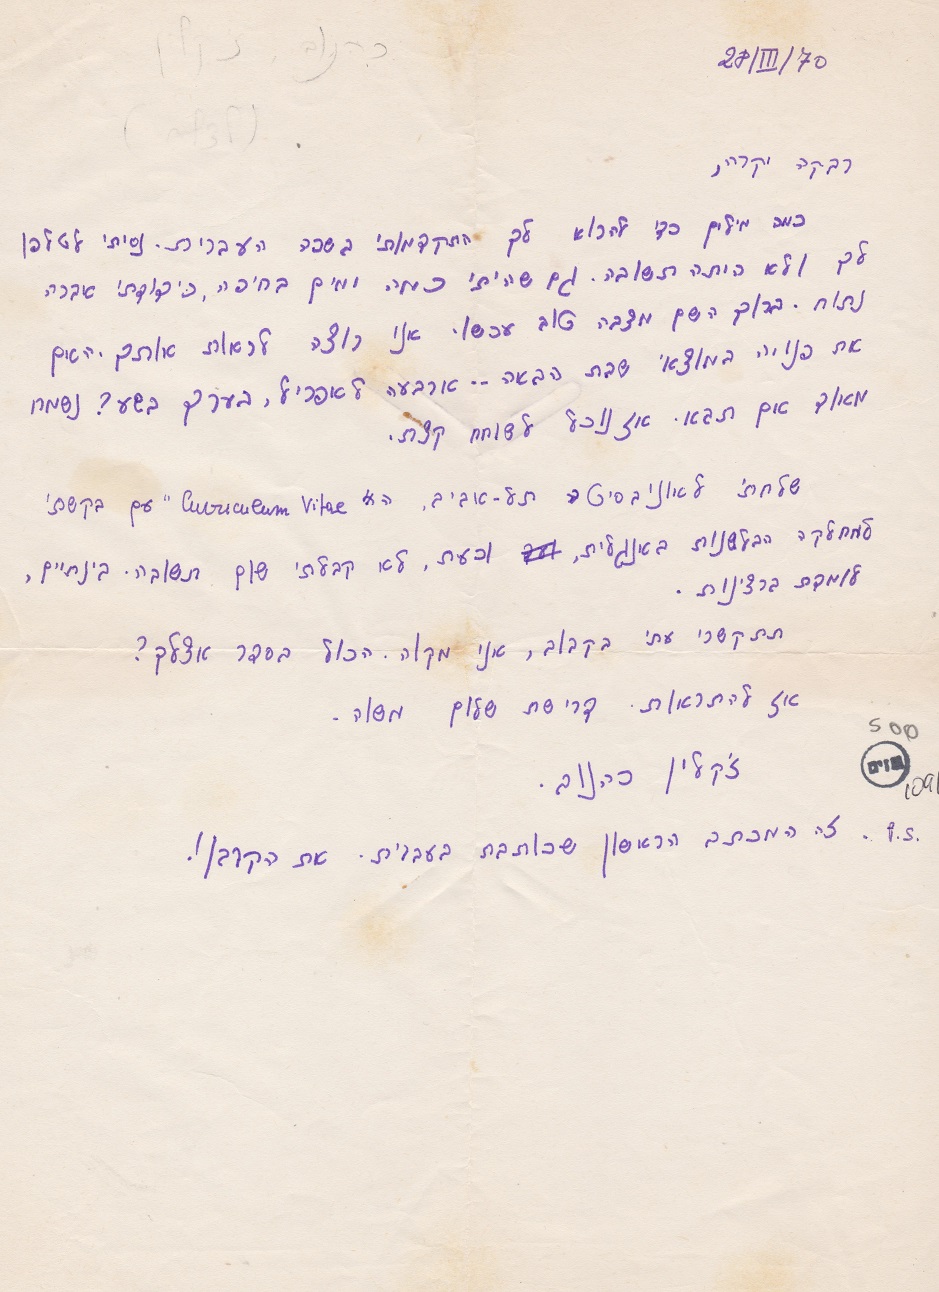 כהנוב, ז׳קלין
28/III/70
רבקה יקרה,
כמה מילים כדי להראות לך התקדמותי בשפה העברית. נסיתי לטלפן
לך ולא היתה תשובה. גם שהיתי כמה ימים בחיפה, כי דודתי אברה
נתוח. ברוך השם מצבה טוב עכשו. אני רוצה לראות אותך. האם
את פנויה במוצאי שבת הבאה -- ארבעה לאפריל, בערך בשע? נשמח
מאוד אם תבאי. אז נוכל לשוחח קצת.
שלחתי לאוניברסיטה תל-אביב, ה"Curriculum Vitae" עם בקשתי
למחלקה הבלשנות באנגלית, וכעת, לא קבלתי שום תשובה. בינתיים,
לומדת ברצינות.
תתקשרי עתי בקרוב, אני מקוה. הכול בסדר אצלך?
אז להתראות. דרישת שלום משוה.
ז'קלין כהנוב.
P.S. זה המכתב הראשון שכותבת בעברית. את הקרבן!
500
גנזים